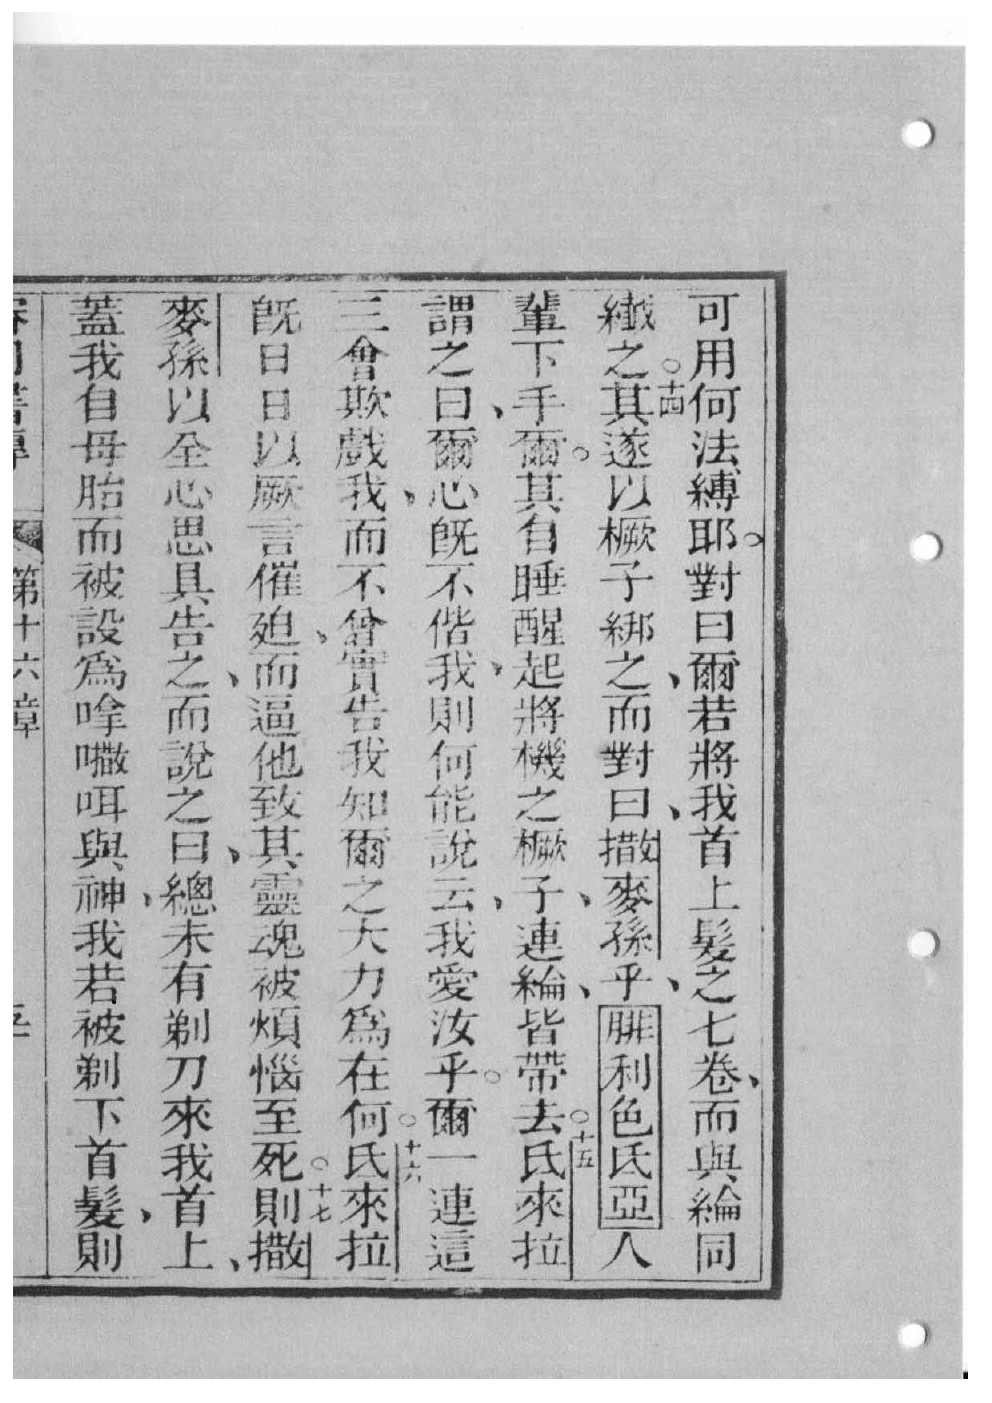 可用何法縛耶。對曰爾若將我首上髮之七卷、而與綸同
織之。十四其遂以橛子綁之、而對曰、撒麥孫乎、腓利色氐亞人
輩下手爾。其自睡醒起將機之橛子、連綸、皆帶去。十五氐來拉
謂之曰、爾心既不偕我、則何能說云、我愛汝乎。爾一連這
三會欺戲我、而不曾實告我知爾之大力為在何。十六氐來拉
既日日以厥言催廹、而逼他致其靈魂被煩惱至死。十七則撒
麥孫以全心思具告之、而說之曰、總未有剃刀來我首上、
蓋我自母胎而被設為㖼𠹌咡與神、我若被剃下首髮、則
第十六章